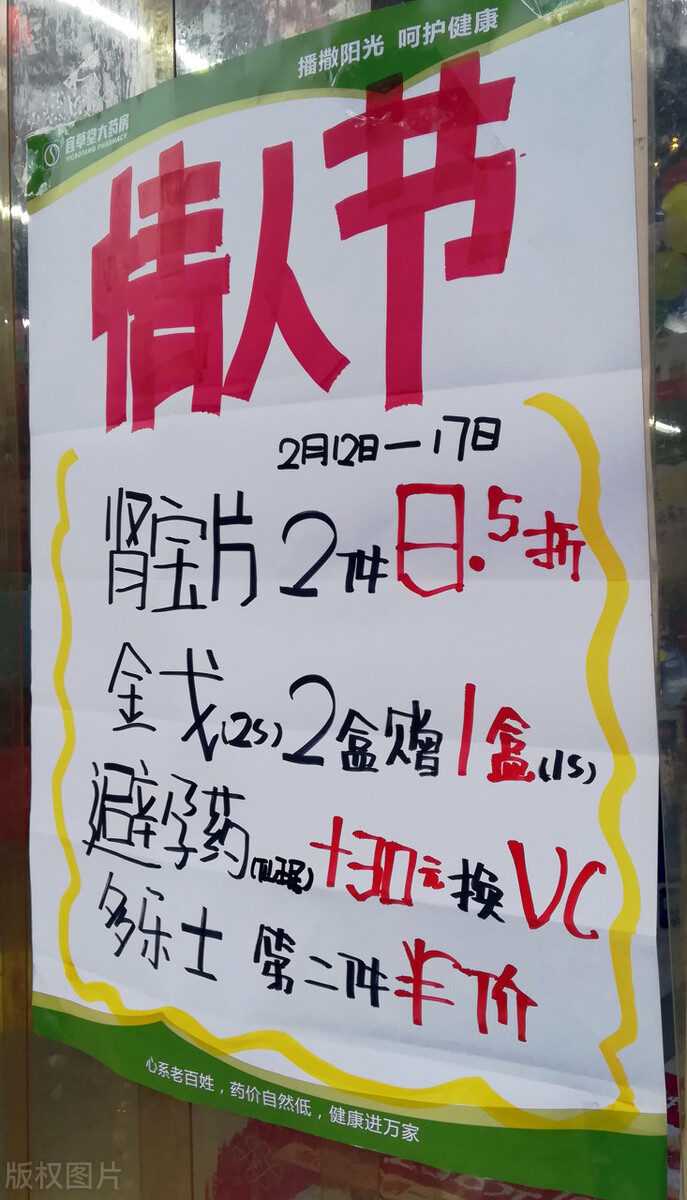 播撒阳光 呵护健康
宜草堂大药房
YICAOTANG PHARMACY
情人节
2月12日—17日
肾宝片 2件 8.5折
金戈(2S) 2盒赠1盒(1S)
避孕药 +30元换VC
多乐士 第二件半价
心系老百姓，药价自然低，健康进万家
版权图片